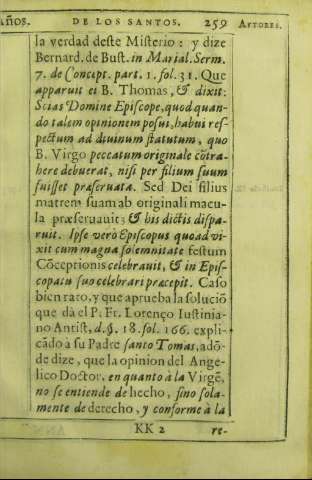 AÑOS. DE LOS SANTOS. 259 AVTORES.
la verdad deste Misterio: y dize
Bernard. de Bust. in Marial. Serm.
7. de Concept. part. 1. fol. 31. Que
apparuit ei B. Thomas, & dixit:
Scias Domine Episcope, quod quan-
do talem opinionem posui, habui res-
pectum ad diuinum statutum, quo
B. Virgo peccatum originale cõtra-
here debuerat, nisi per filium suum
fuisset præseruata. Sed Dei filius
matrem suam ab originali macu-
la præseruauit; & his dictis dispa-
ruit. Ipse verò Episcopus quoad vi-
xit cum magna solemnitate festum
Cõceptionis celebrauit, & in Epis-
copatu suo celebrari præcepit. Caso
bien raro, y que aprueba la soluciõ
que dà el P. Fr. Lorenço Iustinia-
no Antist, d. §. 18. fol. 166. expli-
cãdo a su Padre santo Tomas, adõ-
de dize, que la opinion del Ange-
lico Doctor, en quanto à la Virgẽ,
no se entiende de hecho, sino sola-
mente de derecho, y conforme à la
KK 2 re-